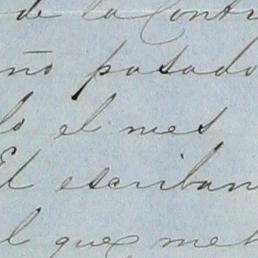 de la Contr
ño pasado
lo el mes
El escriban
l que met